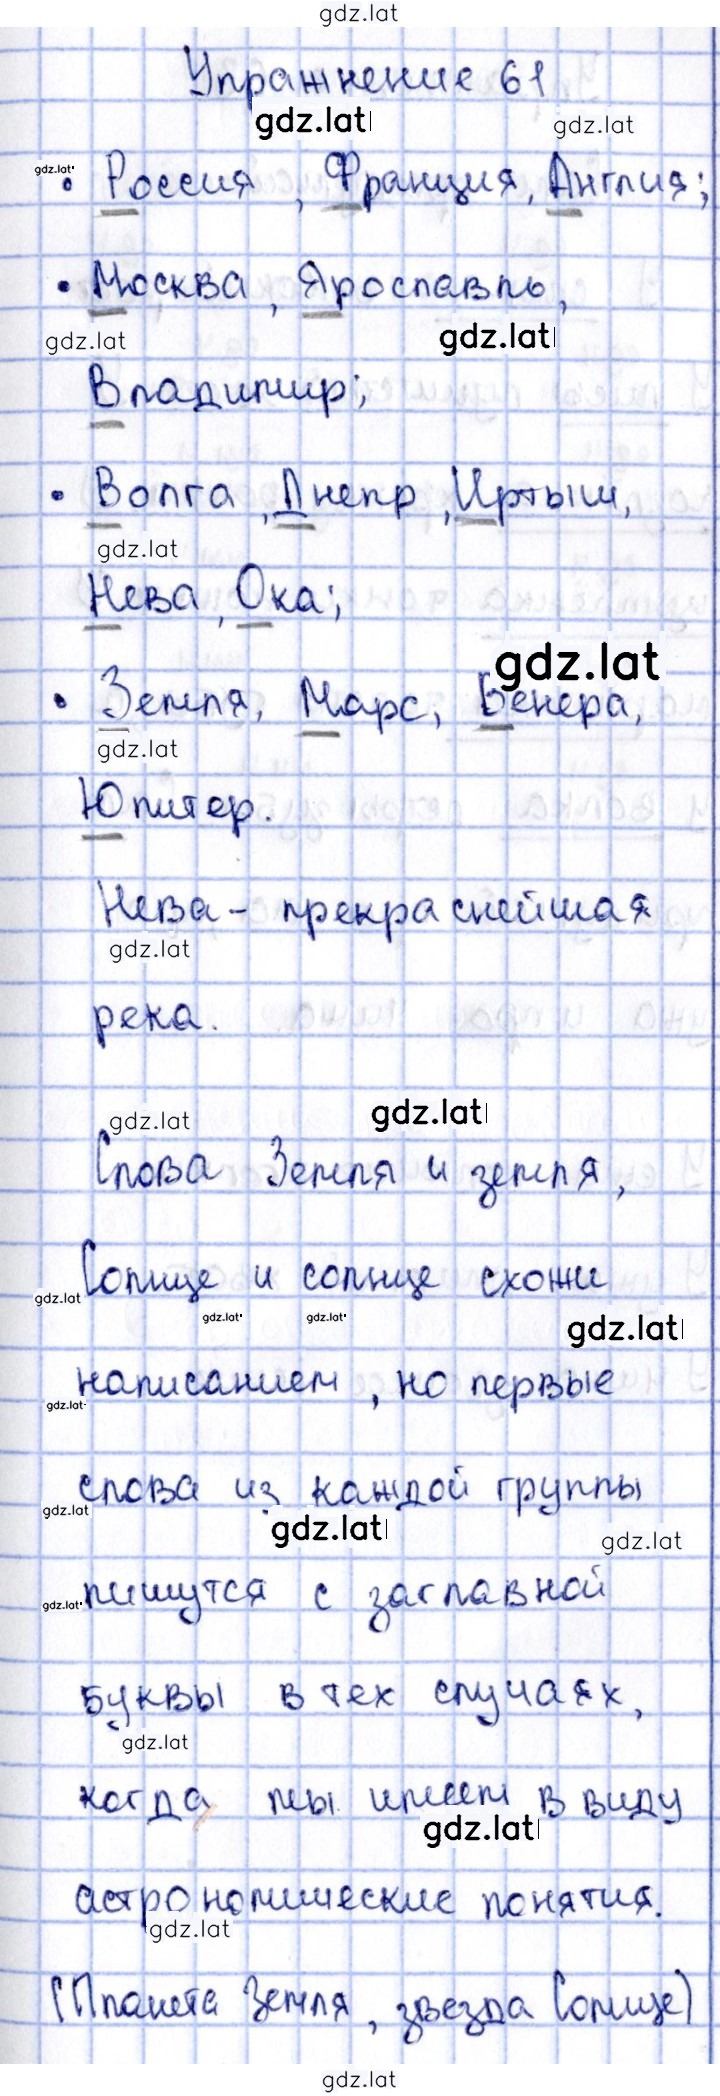 gdz.lat
Упражнение 61
gdz.lat gdz.lat
gdz.lat
• Россия, Франция, Англия;
• Москва, Ярославль,
gdz.lat gdz.lat
Владимир;
• Волга, Днепр, Иртыш,
gdz.lat
Нева, Ока;
gdz.lat
• Земля, Марс, Венера,
gdz.lat
Юпитер.
Нева - прекраснейшая
gdz.lat
река.
gdz.lat gdz.lat
Слова Земля и земля,
Солнце и солнце схожи
gdz.lat gdz.lat gdz.lat gdz.lat
написанием, но первые
gdz.lat
слова из каждой группы
gdz.lat gdz.lat gdz.lat
пишутся с заглавной
gdz.lat
буквы в тех случаях,
gdz.lat
когда мы имеем в виду
gdz.lat
астрономические понятия.
gdz.lat
(Планета Земля, звезда Солнце)
gdz.lat